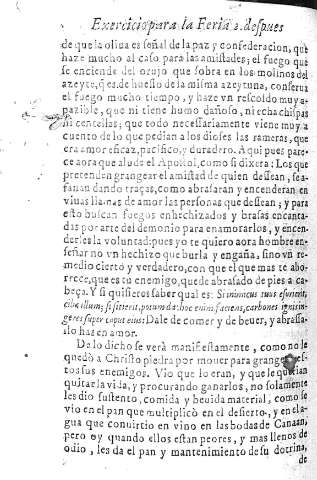 Exercicio para la Feria 2. despues
de que la oliua es señal de la paz y confederacion, que
haze mucho al caso para las amistades; el fuego que
se enciende del orujo que sobra en los molinos del
azeyte, q̃ es de huesso de la misma azeytuna, conserua
el fuego mucho tiempo, y haze vn rescoldo muy a-
pazible, que ni tiene humo dañoso, ni echa chispas
ni centellas; que todo necessariamente viene muy a
cuento de lo que pedian a los dioses las rameras, que
era amor eficaz, pacifico, y duradero. Aqui pues pare-
ce aora que alude el Apostol, como si dixera: Los que
pretenden grangear el amistad de quien dessean, se a-
fanan dando traças, como abrasaran y encenderan en
viuas llamas de amor las personas que dessean; y para
esto buscan fuegos enhechizados y brasas encanta-
das por arte del demonio para enamorarlos, y encen-
derles la voluntad: pues yo te quiero aora hombre en-
señar no vn hechizo que burla y engaña, sino vn re-
medio cierto y verdadero, con que el que mas te abo-
rrece, que es tu enemigo, quede abrasado de pies a ca-
beça. Y si quisieres saber qual es: Si inimicus tuus esurierit,
ciba illum; si sitierit, potum da: hoc enim faciens, carbones ignis con-
geres super caput eius: Dale de comer y de beuer, y abrassa-
lo has en amor.
De lo dicho se verà manifiestamente, como no le
quedò a Christo piedra por mouer para grangear es-
tos sus enemigos. Vio que lo eran, y que le querian
quitar la vida, y procurando ganarlos, no solamente
les dio sustento, comida y beuida material, como se
vio en el pan que multiplicò en el desierto, y en el a-
gua que conuirtio en vino en las bodas de Canaan,
pero oy quando ellos estan peores, y mas llenos de
odio, les da el pan y mantenimiento de su dotrina,
de